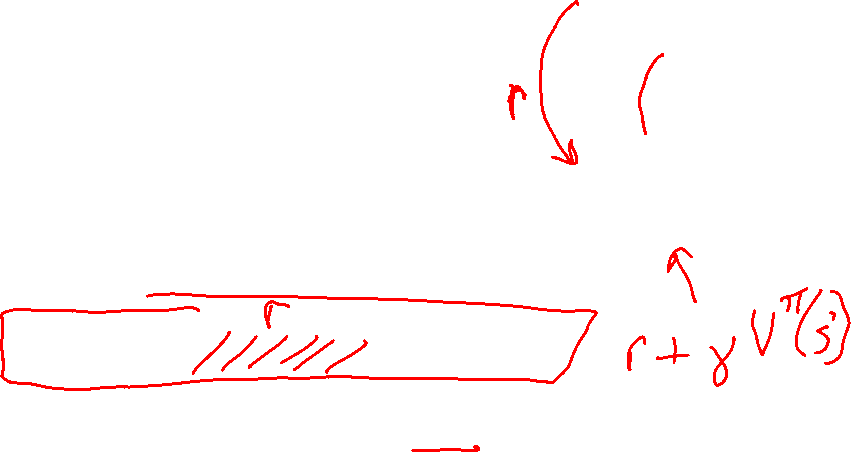 r
r
r + γ V^π(s')